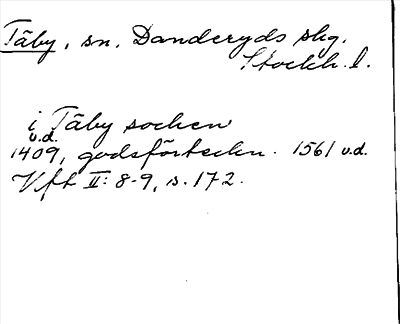 Täby, sn. Danderyds skg.
Stockh. l.
i Täby socken
u.d.
1409, godsförteckn. 1561 u.d.
Vft II: 8-9, s. 172.